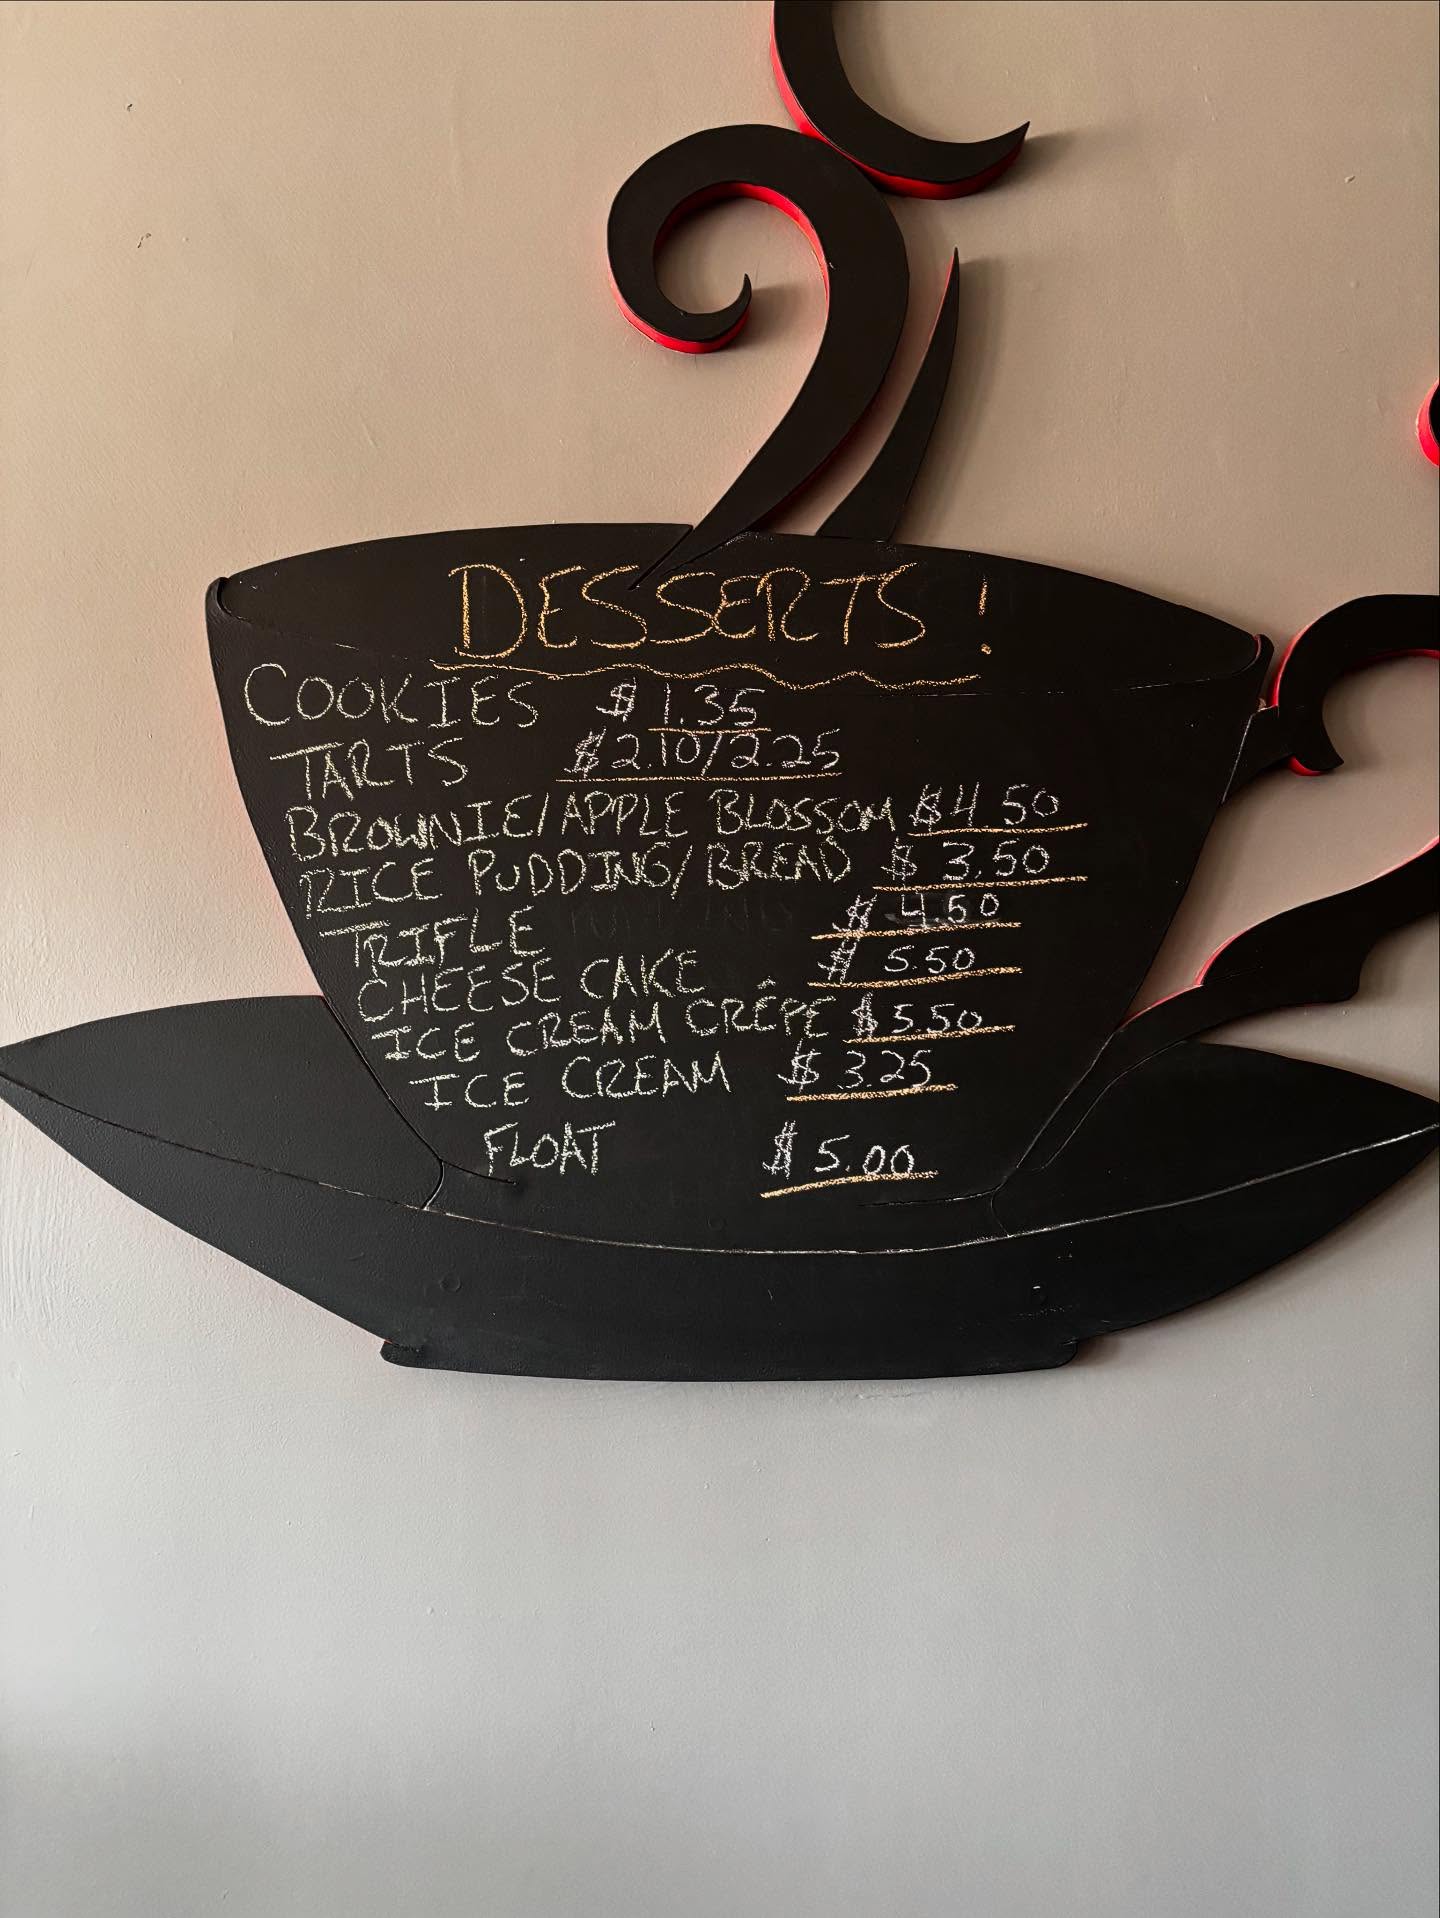 DESSERTS!
COOKIES $1.35
TARTS $2.10/2.25
BROWNIE/APPLE BLOSSOM $4.50
RICE PUDDING/BREAD $3.50
TRIFLE $4.50
CHEESE CAKE $5.50
ICE CREAM CRÊPE $5.50
ICE CREAM $3.25
FLOAT $5.00